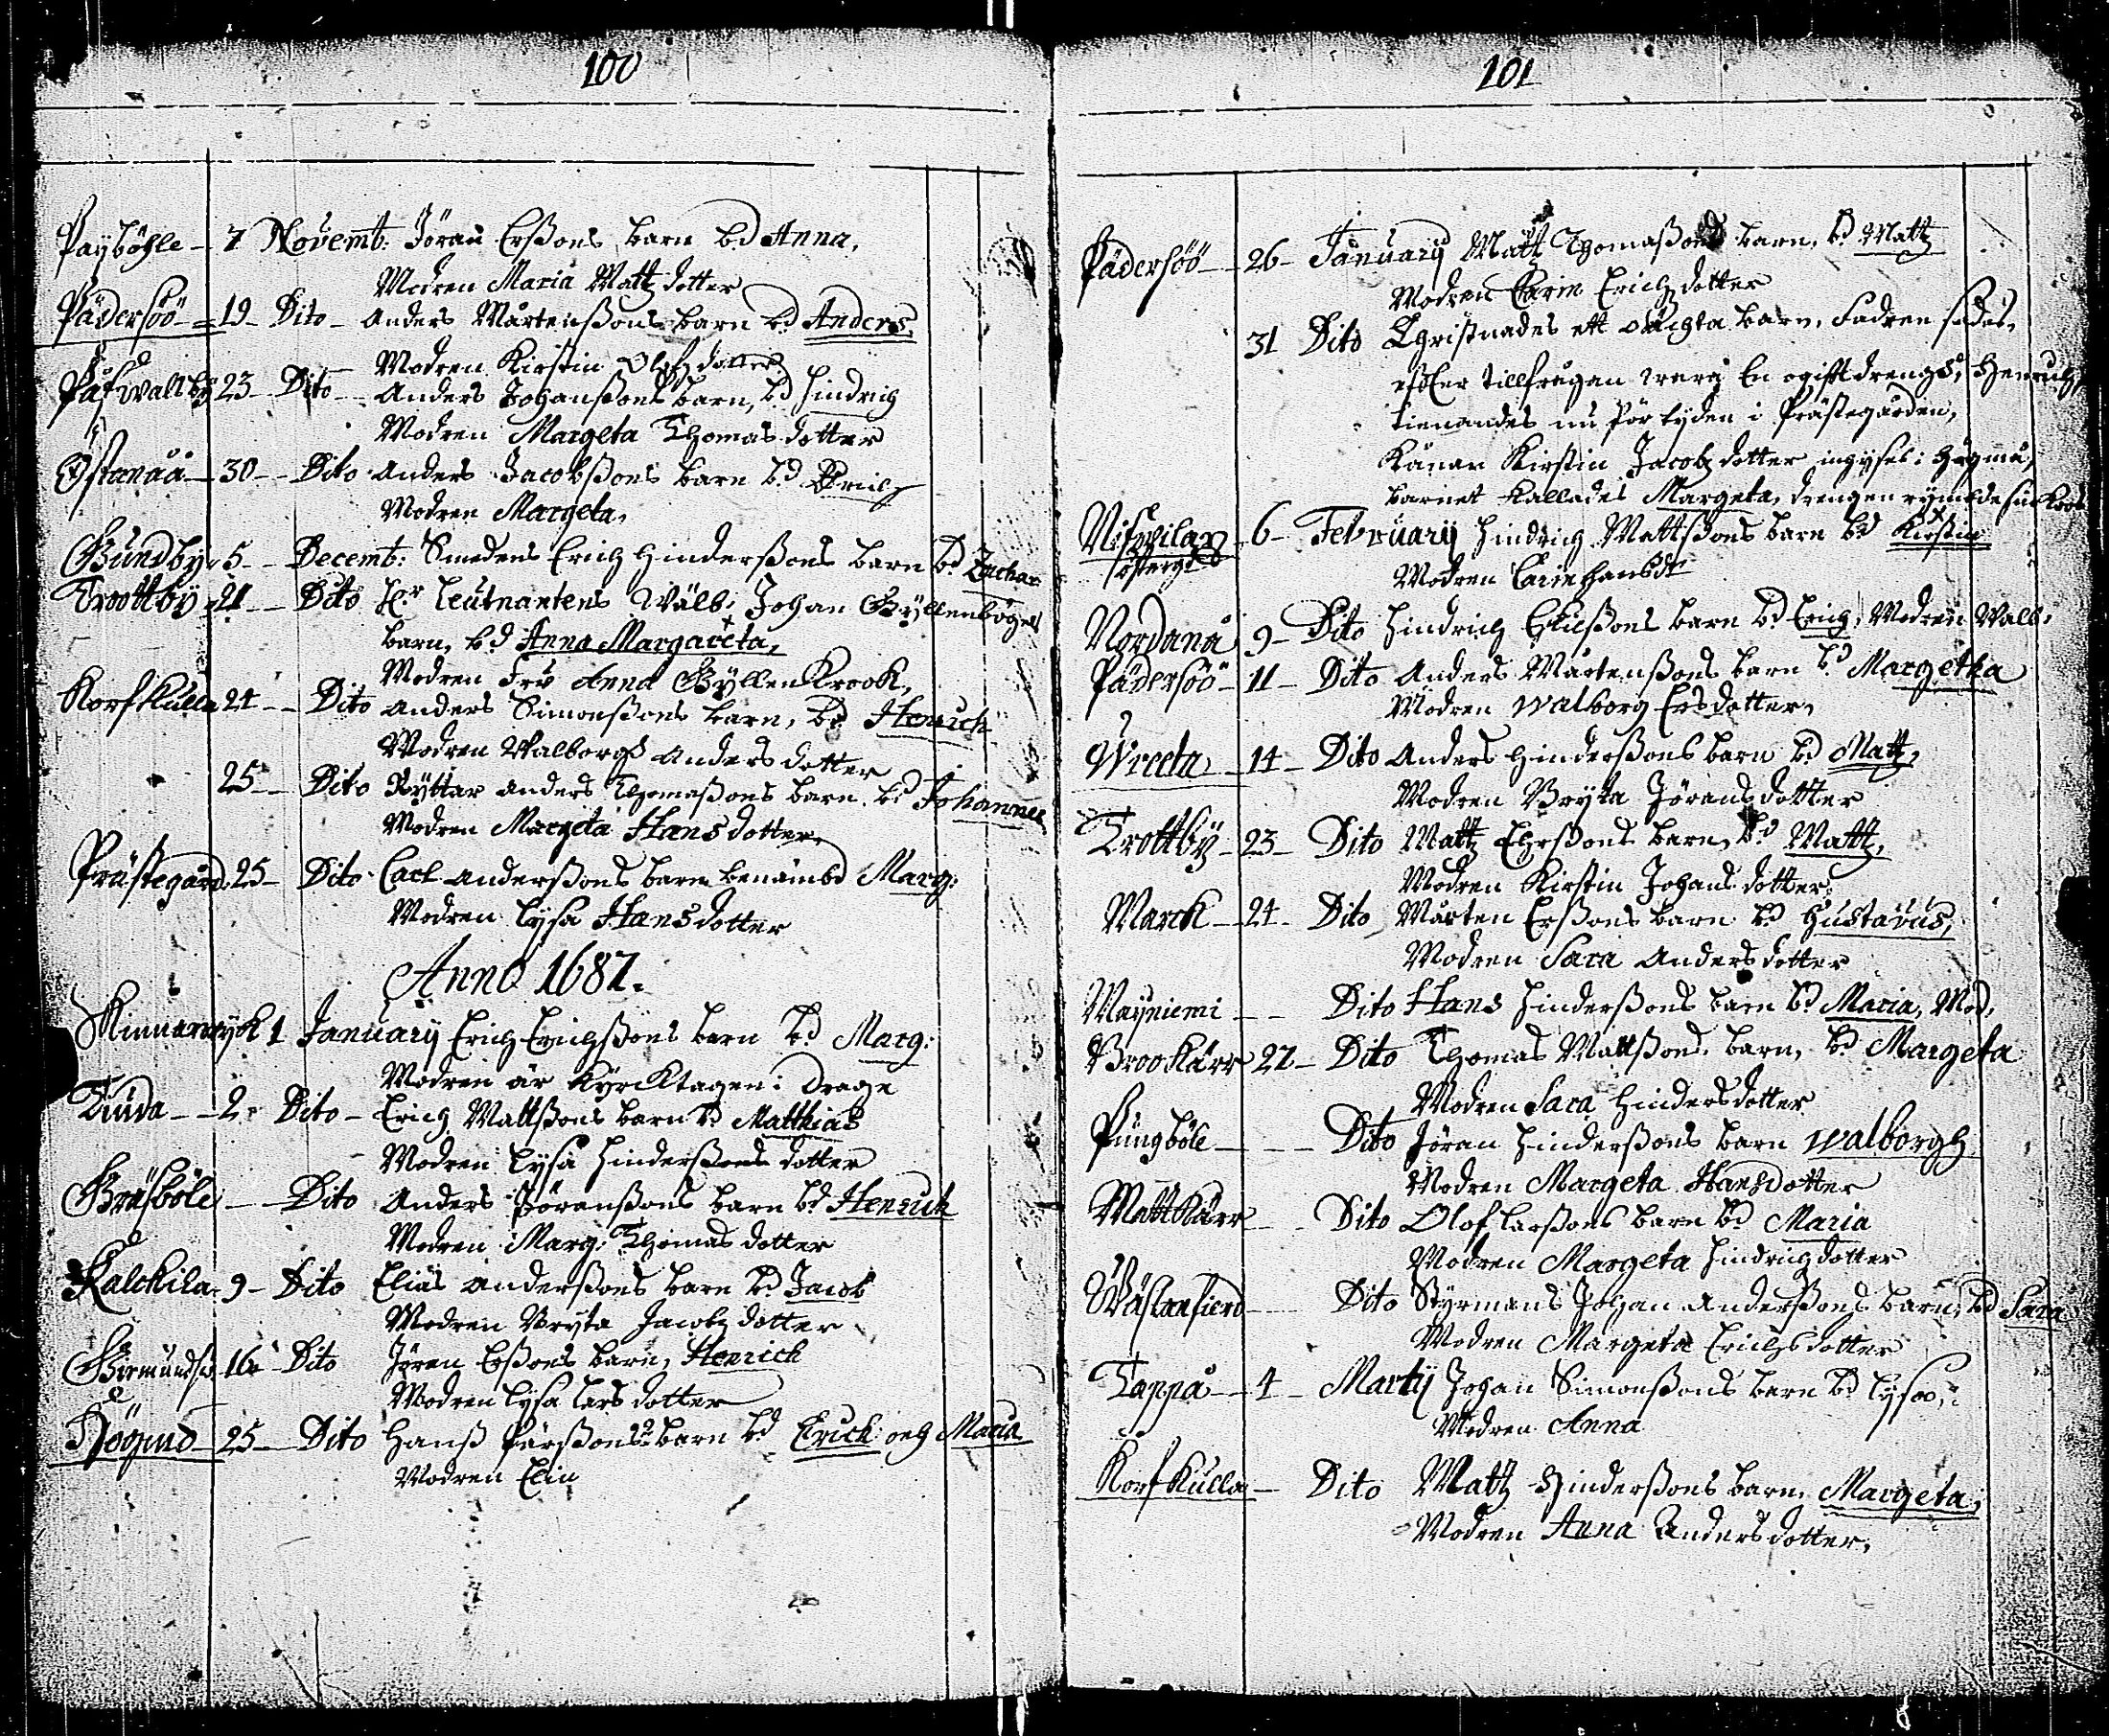 100
Payböhle - 7 Novemb: Jöran Erßons barn bd Anna,
Modren Maria Mattzdotter
Pädersöö - 19 - Dito - Anders Mårtenßons barn bd Anders,
Modren Kirstin Olofzdotter
Påfwalsby 23 - Dito - Anders Johanßons barn, bd Hindrich
Modren Margeta Thomasdotter
Östanåå - 30 - Dito Anders Jacobßons barn bd Erich
Modren Margeta,
Gundby - 5 - Decemb: Smedens Erich Hinderßons barn bd Zachar
Trottby - 21 - Dito Hr Leutnantens Wälb: Johan Gyllenbögels
barn, bd Anna Margareta,
Modren Fru Anna GyllenKrook,
Korfkulla 24 - Dito Anders Simonßons barn, bd Henrich
Modren Walborg Andersdotter
25 - Dito Ryttar Anders Thomaßons barn bd Johannes
Modren Margeta Hansdotter,
Prästegård 25 - Dito Carl Anderßons barn benämbd Marg:
Modren Lysa Hansdotter
Anno 1687.
Kinnarwyk 1 January Erich Erichßons barn bd Marg:
Modren är Kyrcktagen i Drags
Tiuda - 2 - Dito - Erich Mattßons barn bd Matthias
Modren Lysa Hinderßons dotter
Gräsböle - Dito Anders Jöranßons barn bd Henrich
Modren Marg: Thomasdotter
Kalckila - 9 - Dito Elias Anderßons barn bd Jacob
Modren Bryta Jacobzdotter
16 - Dito Jören Erßons barn, Henrich
Modren Lysa Larsdotter
Högmo - 25 - Dito Hanß Pärßons 2 barn bd Erich och Maria
Modren Elin
101
Pädersöö - 26 - January Mattz Thomaßons barn, bd Mattz
Modren Carin Erichzdotter
31 Dito Christnades ett oächta barn, Fadren sades,
effter tillfrågan wara en ogifft drengh, Henrich,
tienandes nu för tyden i Prästegården,
Kånan Kirstin Jacobzdotter inhyses i Högmo,
barnet kallades Margeta, drengen rymbde sin koos
Nifwilax 6 - February Hindrich Mattßons barn bd Kirstin
Östergård Modren Carin Hansdr
Nordanå 9 - Dito Hindrich Eskilßons barn bd Erich, Modren Walb:
Pädersöö - 11 - Dito Anders Mårtenßons barn bd Margetha
Modren Walborg Ersdotter,
Wreeta - 14 - Dito Anders Hinderßons barn bd Matz,
Modren Bryta Jöransdotter
Trottby - 23 - Dito Mattz Erßons barn, bd Mattz,
Modren Kirstin Johansdotter
Marck - 24 - Dito Mårten Erßons barn bd Gustavus,
Modren Sara Andersdotter
Mayniemi - - Dito Hans Hinderßons barn bd Maria, Mod,
Brookärr 27 - Dito Thomas Mattßons barn, bd Margeta
Modren Sara Hindersdotter
Pungböle - - Dito Jöran Hinderßons barn Walborgh
Modren Margeta Hansdotter
Mattkärr - - Dito Olof Larßons barn bd Maria
Modren Margeta Hindrichzdotter
Wästanfierd - Dito Styrmans Johan Anderßons barn, bd Sara
Modren Margeta Erichsdotter
Tappå - 4 - Marty Johan Simonßons barn bd Lysa,
Modren Anna
Korfkulla - Dito Mattz Hinderßons barn, Margeta,
Modren Anna Andersdotter,